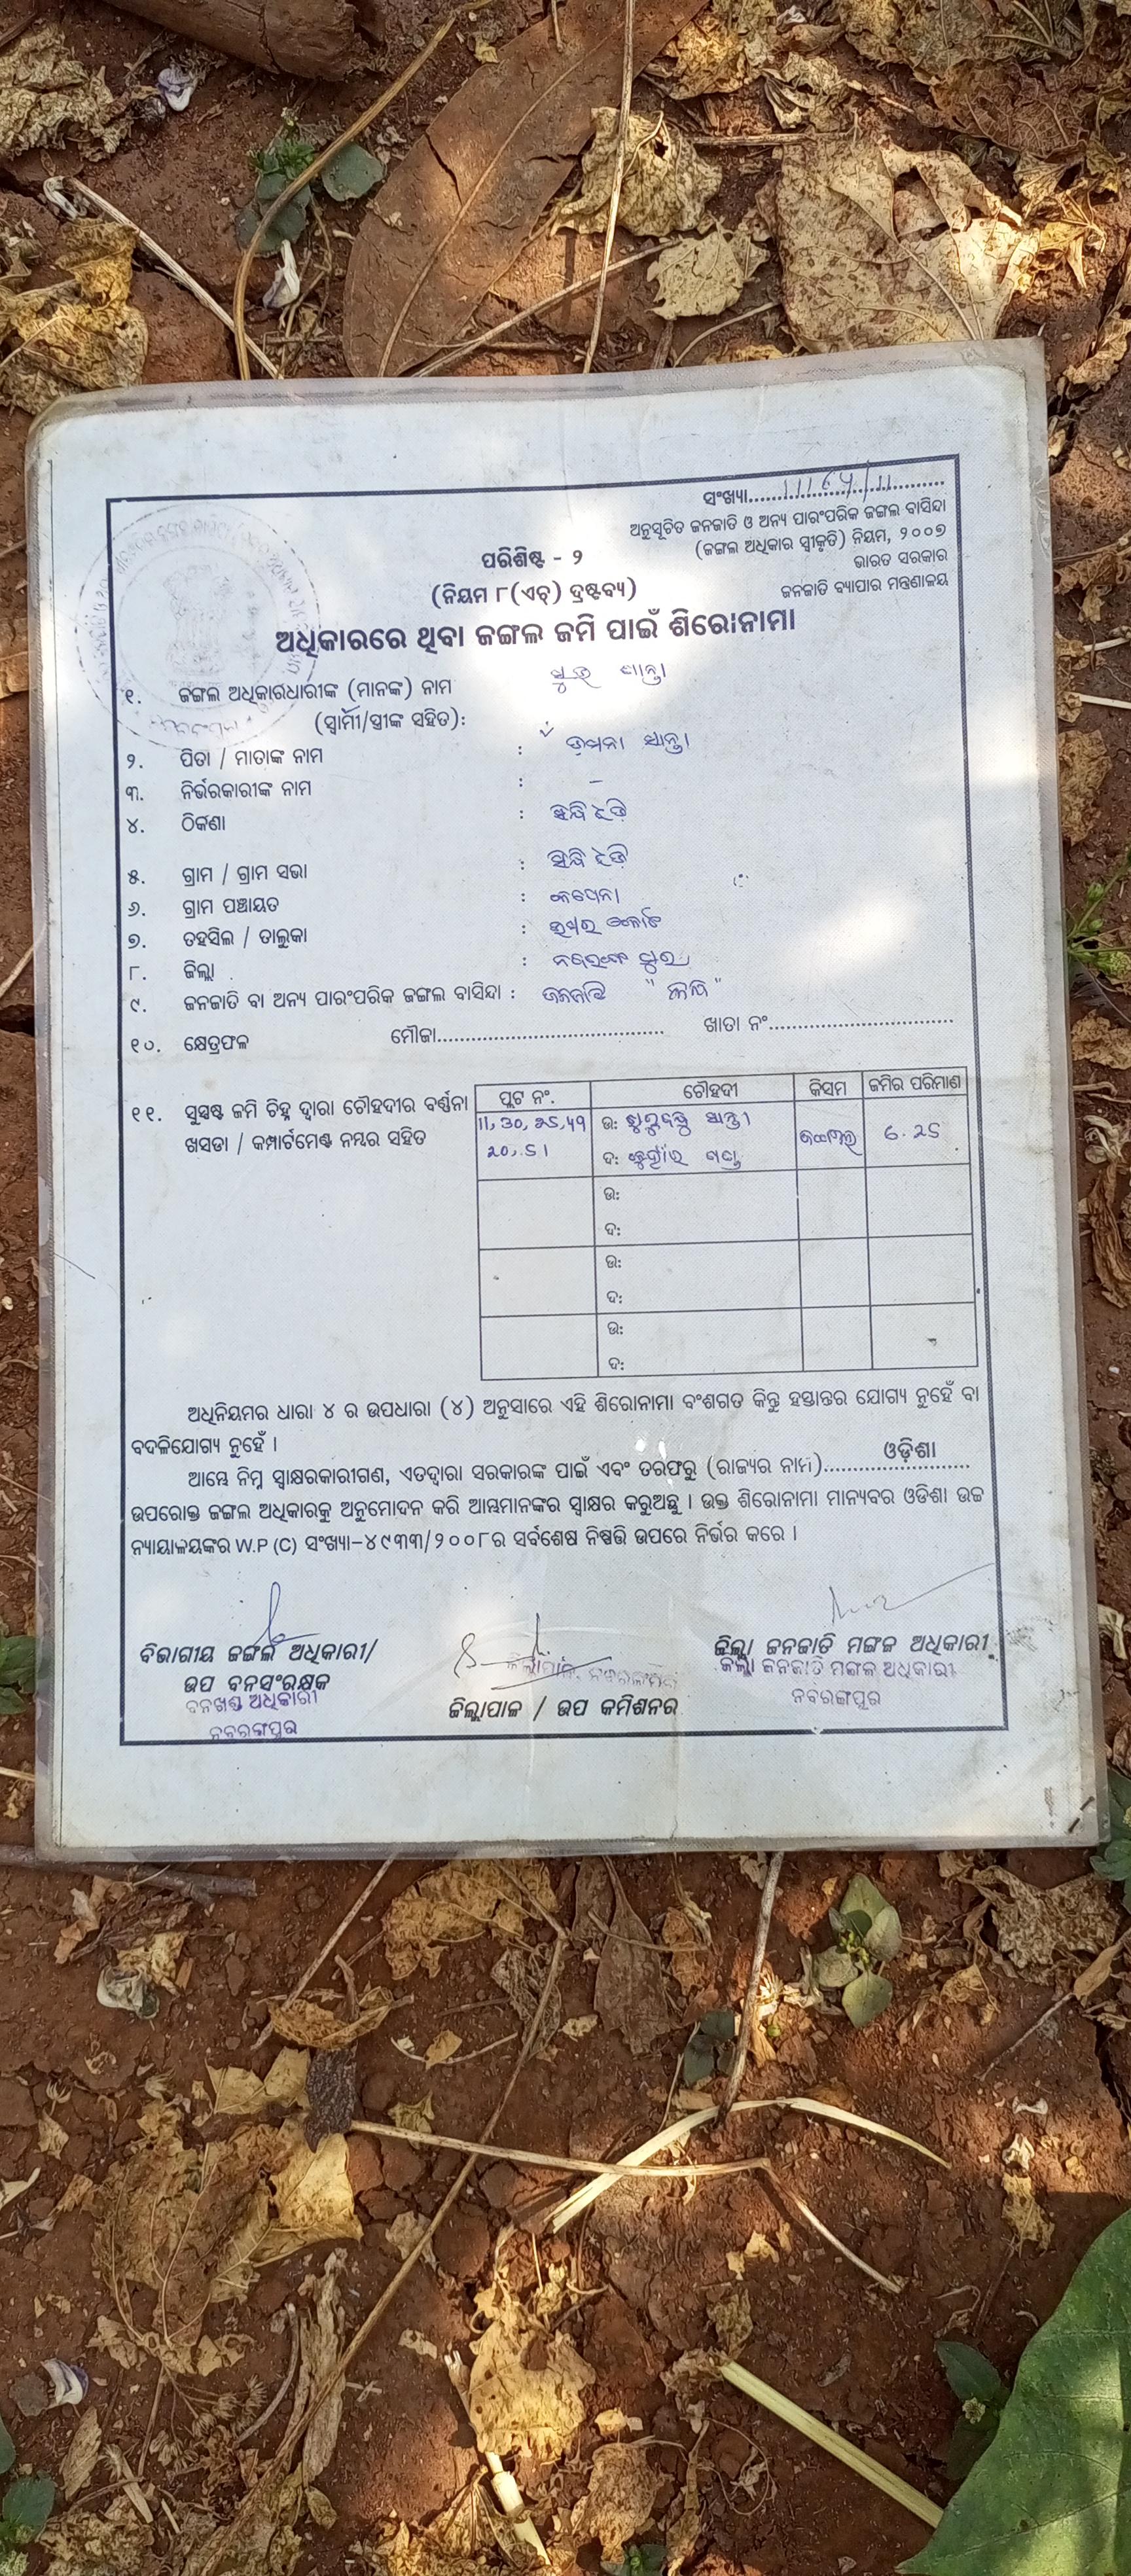 ସଂଖ୍ୟା
ଅନୁସୂଚିତ ଜନଜାତି ଓ ଅନ୍ୟ ପାରଂପରିକ ଜଙ୍ଗଲ ବାସିନ୍ଦା
(ଜଙ୍ଗଲ ଅଧିକାର ସ୍ୱୀକୃତି) ନିୟମ, ୨୦୦୭
ଭାରତ ସରକାର
ଜନଜାତି ବ୍ୟାପାର ମନ୍ତ୍ରଣାଳୟ
ପରିଶିଷ୍ଟ - ୨
(ନିୟମ ୮(ଏଚ୍) ଦ୍ରଷ୍ଟବ୍ୟ)
ଅଧିକାରରେ ଥିବା ଜଙ୍ଗଲ ଜମି ପାଇଁ ଶିରୋନାମା
୧. ଜଙ୍ଗଲ ଅଧିକାରଧାରୀଙ୍କ (ମାନଙ୍କ) ନାମ
(ସ୍ୱାମୀ/ସ୍ତ୍ରୀଙ୍କ ସହିତ):
୨. ପିତା / ମାତାଙ୍କ ନାମ :
୩. ନିର୍ଭରକାରୀଙ୍କ ନାମ : –
୪. ଠିକଣା :
୫. ଗ୍ରାମ / ଗ୍ରାମ ସଭା :
୬. ଗ୍ରାମ ପଞ୍ଚାୟତ :
୭. ତହସିଲ / ତାଲୁକା :
୮. ଜିଲ୍ଲା :
୯. ଜନଜାତି ବା ଅନ୍ୟ ପାରଂପରିକ ଜଙ୍ଗଲ ବାସିନ୍ଦା : ଜନଜାତି
୧୦. କ୍ଷେତ୍ରଫଳ ମୌଜା........ ଖାତା ନଂ........
୧୧. ସୁସ୍ପଷ୍ଟ ଜମି ଚିହ୍ନ ଦ୍ୱାରା ଚୌହଦୀର ବର୍ଣ୍ଣନା
ଖସଡା / କମ୍ପାର୍ଟମେଣ୍ଟ ନମ୍ବର ସହିତ
ପ୍ଲଟ ନଂ. ଚୌହଦୀ କିସମ ଜମିର ପରିମାଣ
11, 30, ଉ: 6.25
20, 51 ଦ:
ଉ:
ଦ:
ଉ:
ଦ:
ଉ:
ଦ:
ଅଧିନିୟମର ଧାରା ୪ ର ଉପଧାରା (୪) ଅନୁସାରେ ଏହି ଶିରୋନାମା ବଂଶଗତ କିନ୍ତୁ ହସ୍ତାନ୍ତର ଯୋଗ୍ୟ ନୁହେଁ ବା
ବଦଳିଯୋଗ୍ୟ ନୁହେଁ ।
ଆମ୍ଭେ ନିମ୍ନ ସ୍ୱାକ୍ଷରକାରୀଗଣ, ଏତଦ୍ୱାରା ସରକାରଙ୍କ ପାଇଁ ଏବଂ ତରଫରୁ (ରାଜ୍ୟର ନାମ)........ଓଡ଼ିଶା........
ଉପରୋକ୍ତ ଜଙ୍ଗଲ ଅଧିକାରକୁ ଅନୁମୋଦନ କରି ଆମ୍ଭମାନଙ୍କର ସ୍ୱାକ୍ଷର କରୁଅଛୁ । ଉକ୍ତ ଶିରୋନାମା ମାନ୍ୟବର ଓଡିଶା ଉଚ୍ଚ
ନ୍ୟାୟାଳୟଙ୍କର W.P (C) ସଂଖ୍ୟା-୪୯୩୩/୨୦୦୮ର ସର୍ବଶେଷ ନିଷ୍ପତ୍ତି ଉପରେ ନିର୍ଭର କରେ ।
ବିଭାଗୀୟ ଜଙ୍ଗଲ ଅଧିକାରୀ/
ଉପ ବନସଂରକ୍ଷକ
ବନଖଣ୍ଡ ଅଧିକାରୀ
ନବରଙ୍ଗପୁର
ଜିଲ୍ଲାପାଳ, ନବରଙ୍ଗପୁର
ଜିଲ୍ଲାପାଳ / ଉପ କମିଶନର
ଜିଲ୍ଲା ଜନଜାତି ମଙ୍ଗଳ ଅଧିକାରୀ
ଜିଲ୍ଲା ଜନଜାତି ମଙ୍ଗଳ ଅଧିକାରୀ
ନବରଙ୍ଗପୁର